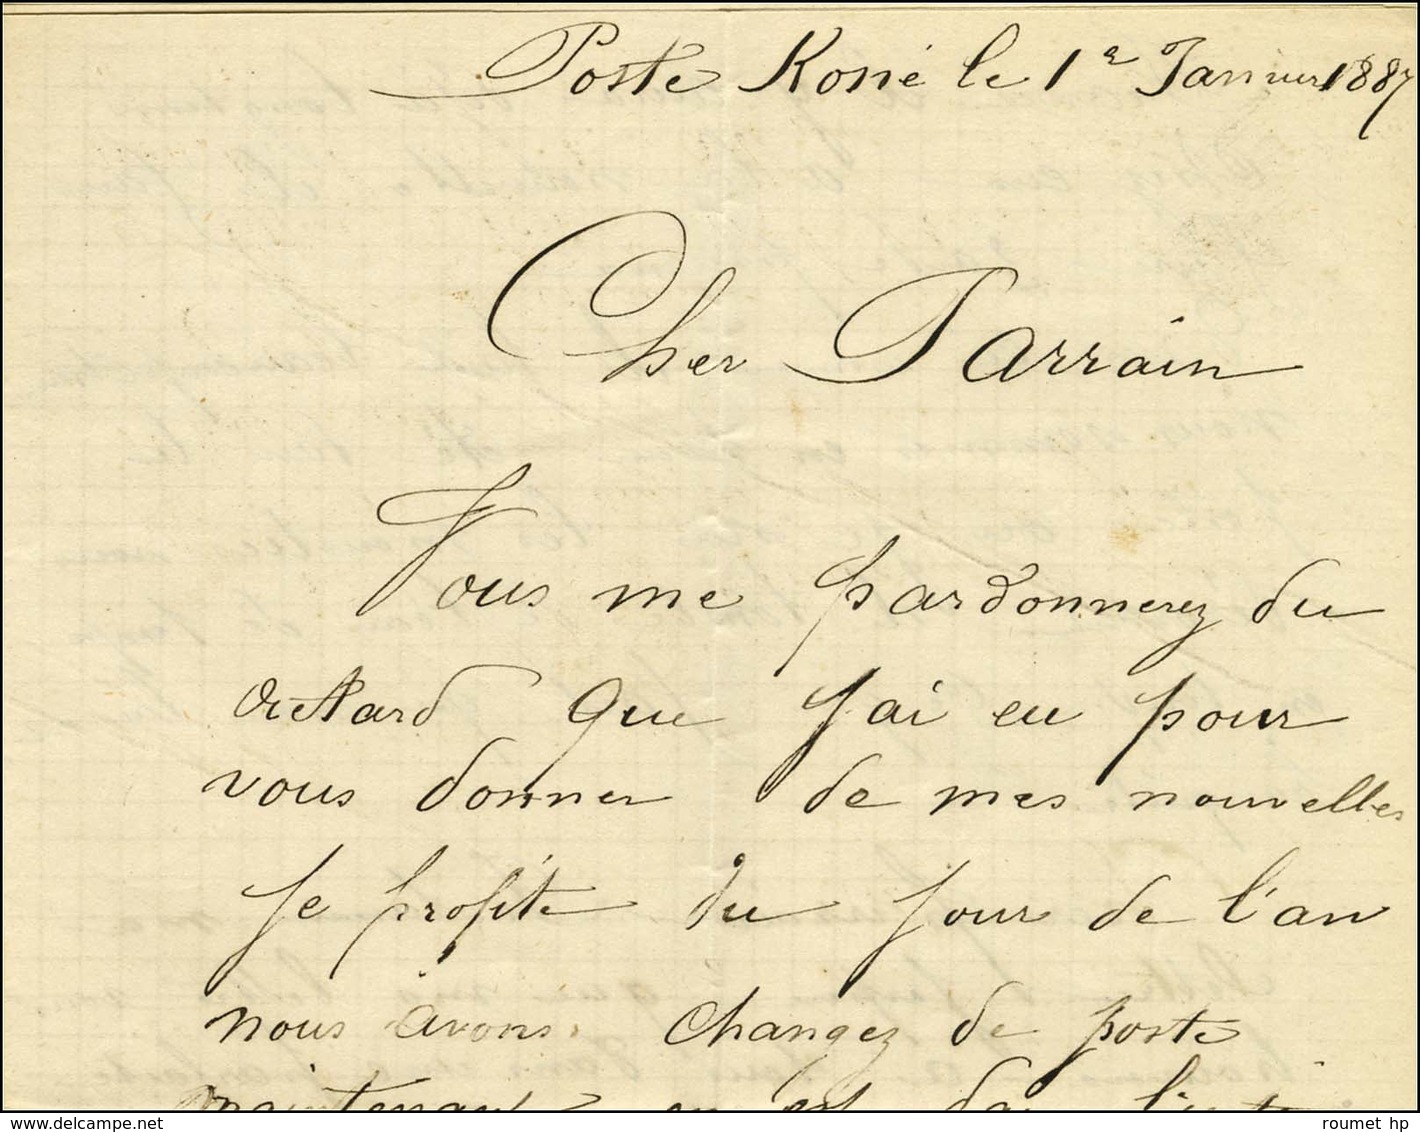 Poste Koné le 1er Janvier 1887
Cher Parrain
Vous me pardonnerez du
retard que j'ai eu pour
vous donner de mes nouvelles
je profite du jour de l'an
nous avons changez de poste
maintenant on est dans
www.delcampe.net
roumet hp